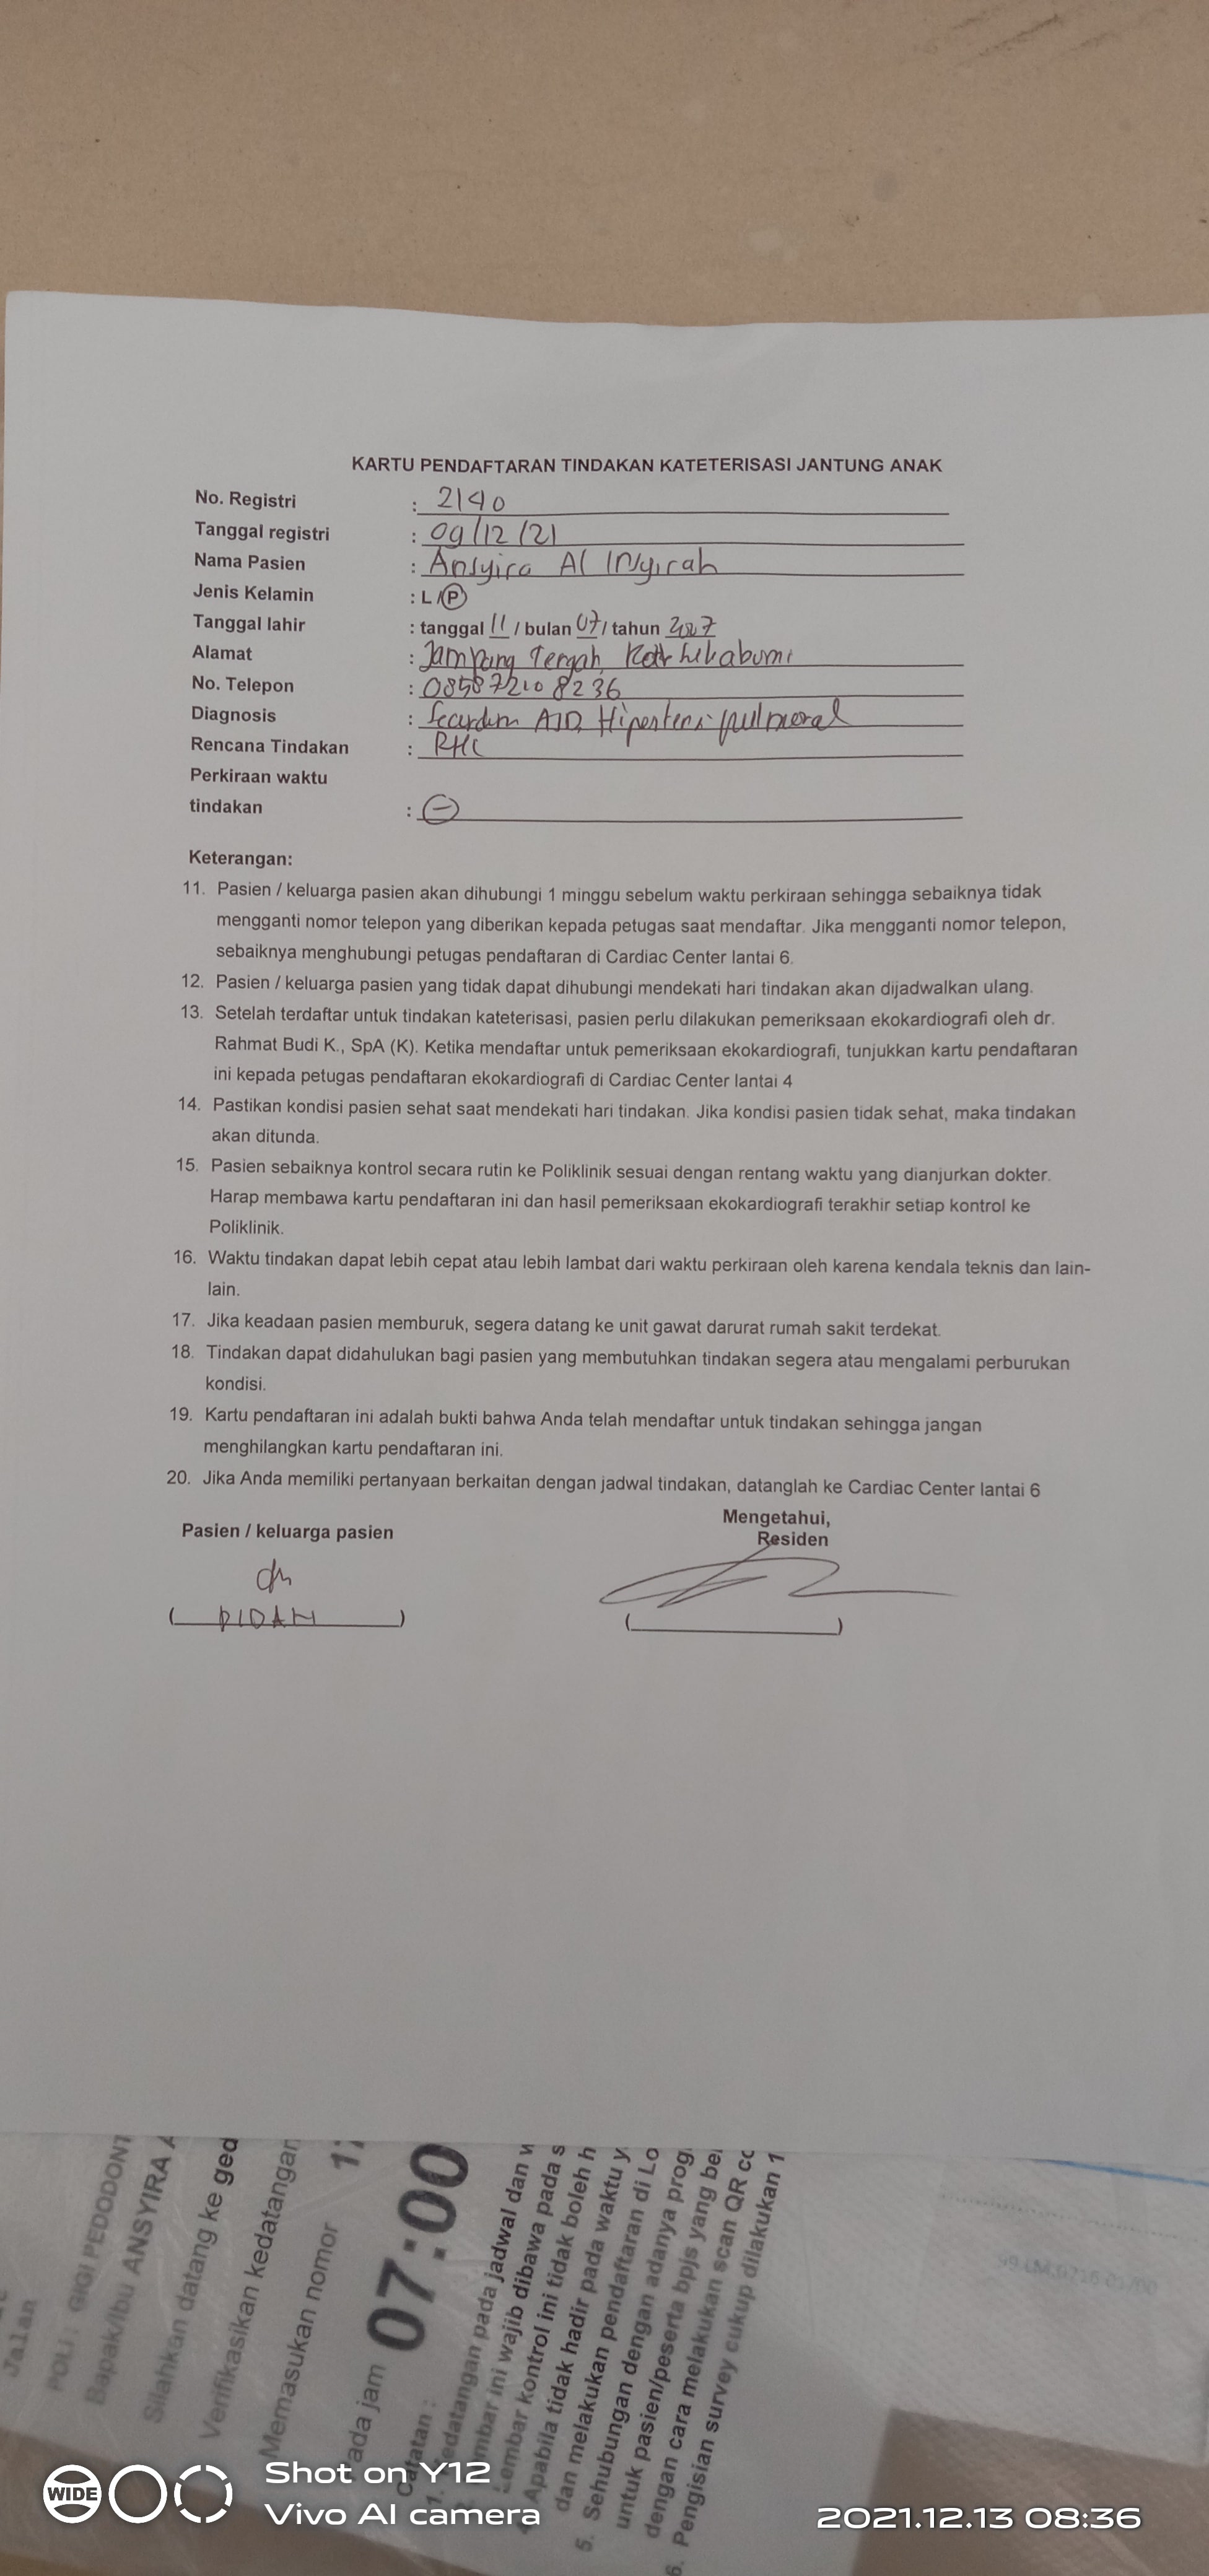 KARTU PENDAFTARAN TINDAKAN KATETERISASI JANTUNG ANAK
No. Registri : 2140
Tanggal registri : 09/12/21
Nama Pasien : Ansyira Al Insyirah
Jenis Kelamin : L / P
Tanggal lahir : tanggal 11 / bulan 07 / tahun
Alamat : Jampang Tengah,
No. Telepon : 085872108236
Diagnosis : Secundum ASD, Hipertensi pulmonal
Rencana Tindakan : RHC
Perkiraan waktu
tindakan : -
Keterangan:
11. Pasien / keluarga pasien akan dihubungi 1 minggu sebelum waktu perkiraan sehingga sebaiknya tidak
mengganti nomor telepon yang diberikan kepada petugas saat mendaftar. Jika mengganti nomor telepon,
sebaiknya menghubungi petugas pendaftaran di Cardiac Center lantai 6.
12. Pasien / keluarga pasien yang tidak dapat dihubungi mendekati hari tindakan akan dijadwalkan ulang.
13. Setelah terdaftar untuk tindakan kateterisasi, pasien perlu dilakukan pemeriksaan ekokardiografi oleh dr.
Rahmat Budi K., SpA (K). Ketika mendaftar untuk pemeriksaan ekokardiografi, tunjukkan kartu pendaftaran
ini kepada petugas pendaftaran ekokardiografi di Cardiac Center lantai 4
14. Pastikan kondisi pasien sehat saat mendekati hari tindakan. Jika kondisi pasien tidak sehat, maka tindakan
akan ditunda.
15. Pasien sebaiknya kontrol secara rutin ke Poliklinik sesuai dengan rentang waktu yang dianjurkan dokter.
Harap membawa kartu pendaftaran ini dan hasil pemeriksaan ekokardiografi terakhir setiap kontrol ke
Poliklinik.
16. Waktu tindakan dapat lebih cepat atau lebih lambat dari waktu perkiraan oleh karena kendala teknis dan lain-
lain.
17. Jika keadaan pasien memburuk, segera datang ke unit gawat darurat rumah sakit terdekat.
18. Tindakan dapat didahulukan bagi pasien yang membutuhkan tindakan segera atau mengalami perburukan
kondisi.
19. Kartu pendaftaran ini adalah bukti bahwa Anda telah mendaftar untuk tindakan sehingga jangan
menghilangkan kartu pendaftaran ini.
20. Jika Anda memiliki pertanyaan berkaitan dengan jadwal tindakan, datanglah ke Cardiac Center lantai 6
Pasien / keluarga pasien
Mengetahui,
Residen
( DIDAH )
Jalan
POLI : GIGI PEDODONT
Bapak/Ibu ANSYIRA A
Silahkan datang ke ged
Verifikasikan kedatangan
Memasukan nomor
Pada jam 07:00
Catatan :
1. Kedatangan pada jadwal dan
Lembar ini wajib dibawa pada s
Lembar kontrol ini tidak boleh h
Apabila tidak hadir pada waktu y
dan melakukan pendaftaran di Lo
5. Sehubungan dengan adanya prog
untuk pasien/peserta bpjs yang be
dengan cara melakukan scan QR co
6. Pengisian survey cukup dilakukan 1
WIDE
Shot on Y12
Vivo AI camera
2021.12.13 08:36